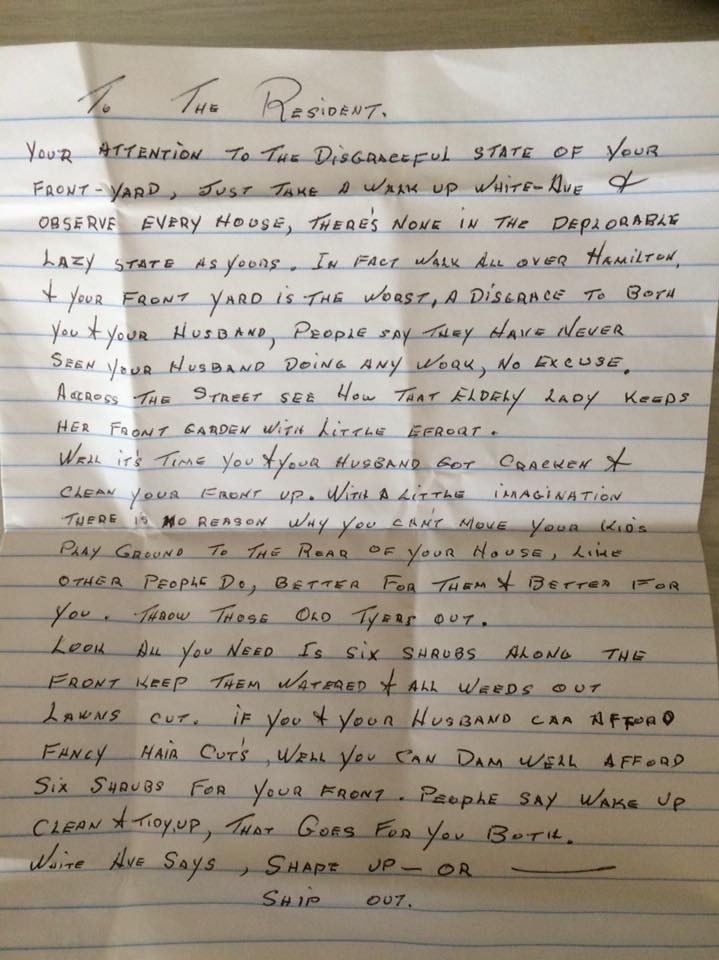 To The Resident.
Your Attention to the Disgraceful state of your
front-yard, just take a walk up White-Ave &
observe every house, there's none in the deplorable
lazy state as yours. In fact walk all over Hamilton,
& your front yard is the worst, a disgrace to both
you & your husband, people say they have never
seen your husband doing any work, no excuse.
Accross the street see how that eldely lady keeps
her front garden with little effort.
Well it's time you & your husband got cracken &
clean your front up. With a little imagination
there is no reason why you can't move your kids
play ground to the rear of your house, like
other people do, better for them & better for
you. Throw those old tyers out.
Look all you need is six shrubs along the
front keep them watered & all weeds out
lawns cut. if you & your husband can afford
fancy hair cut's, well you can dam well afford
six shrubs for your front. People say wake up
clean & tidy,up, that goes for you both.
White Ave says, shape up - or ———
ship out.